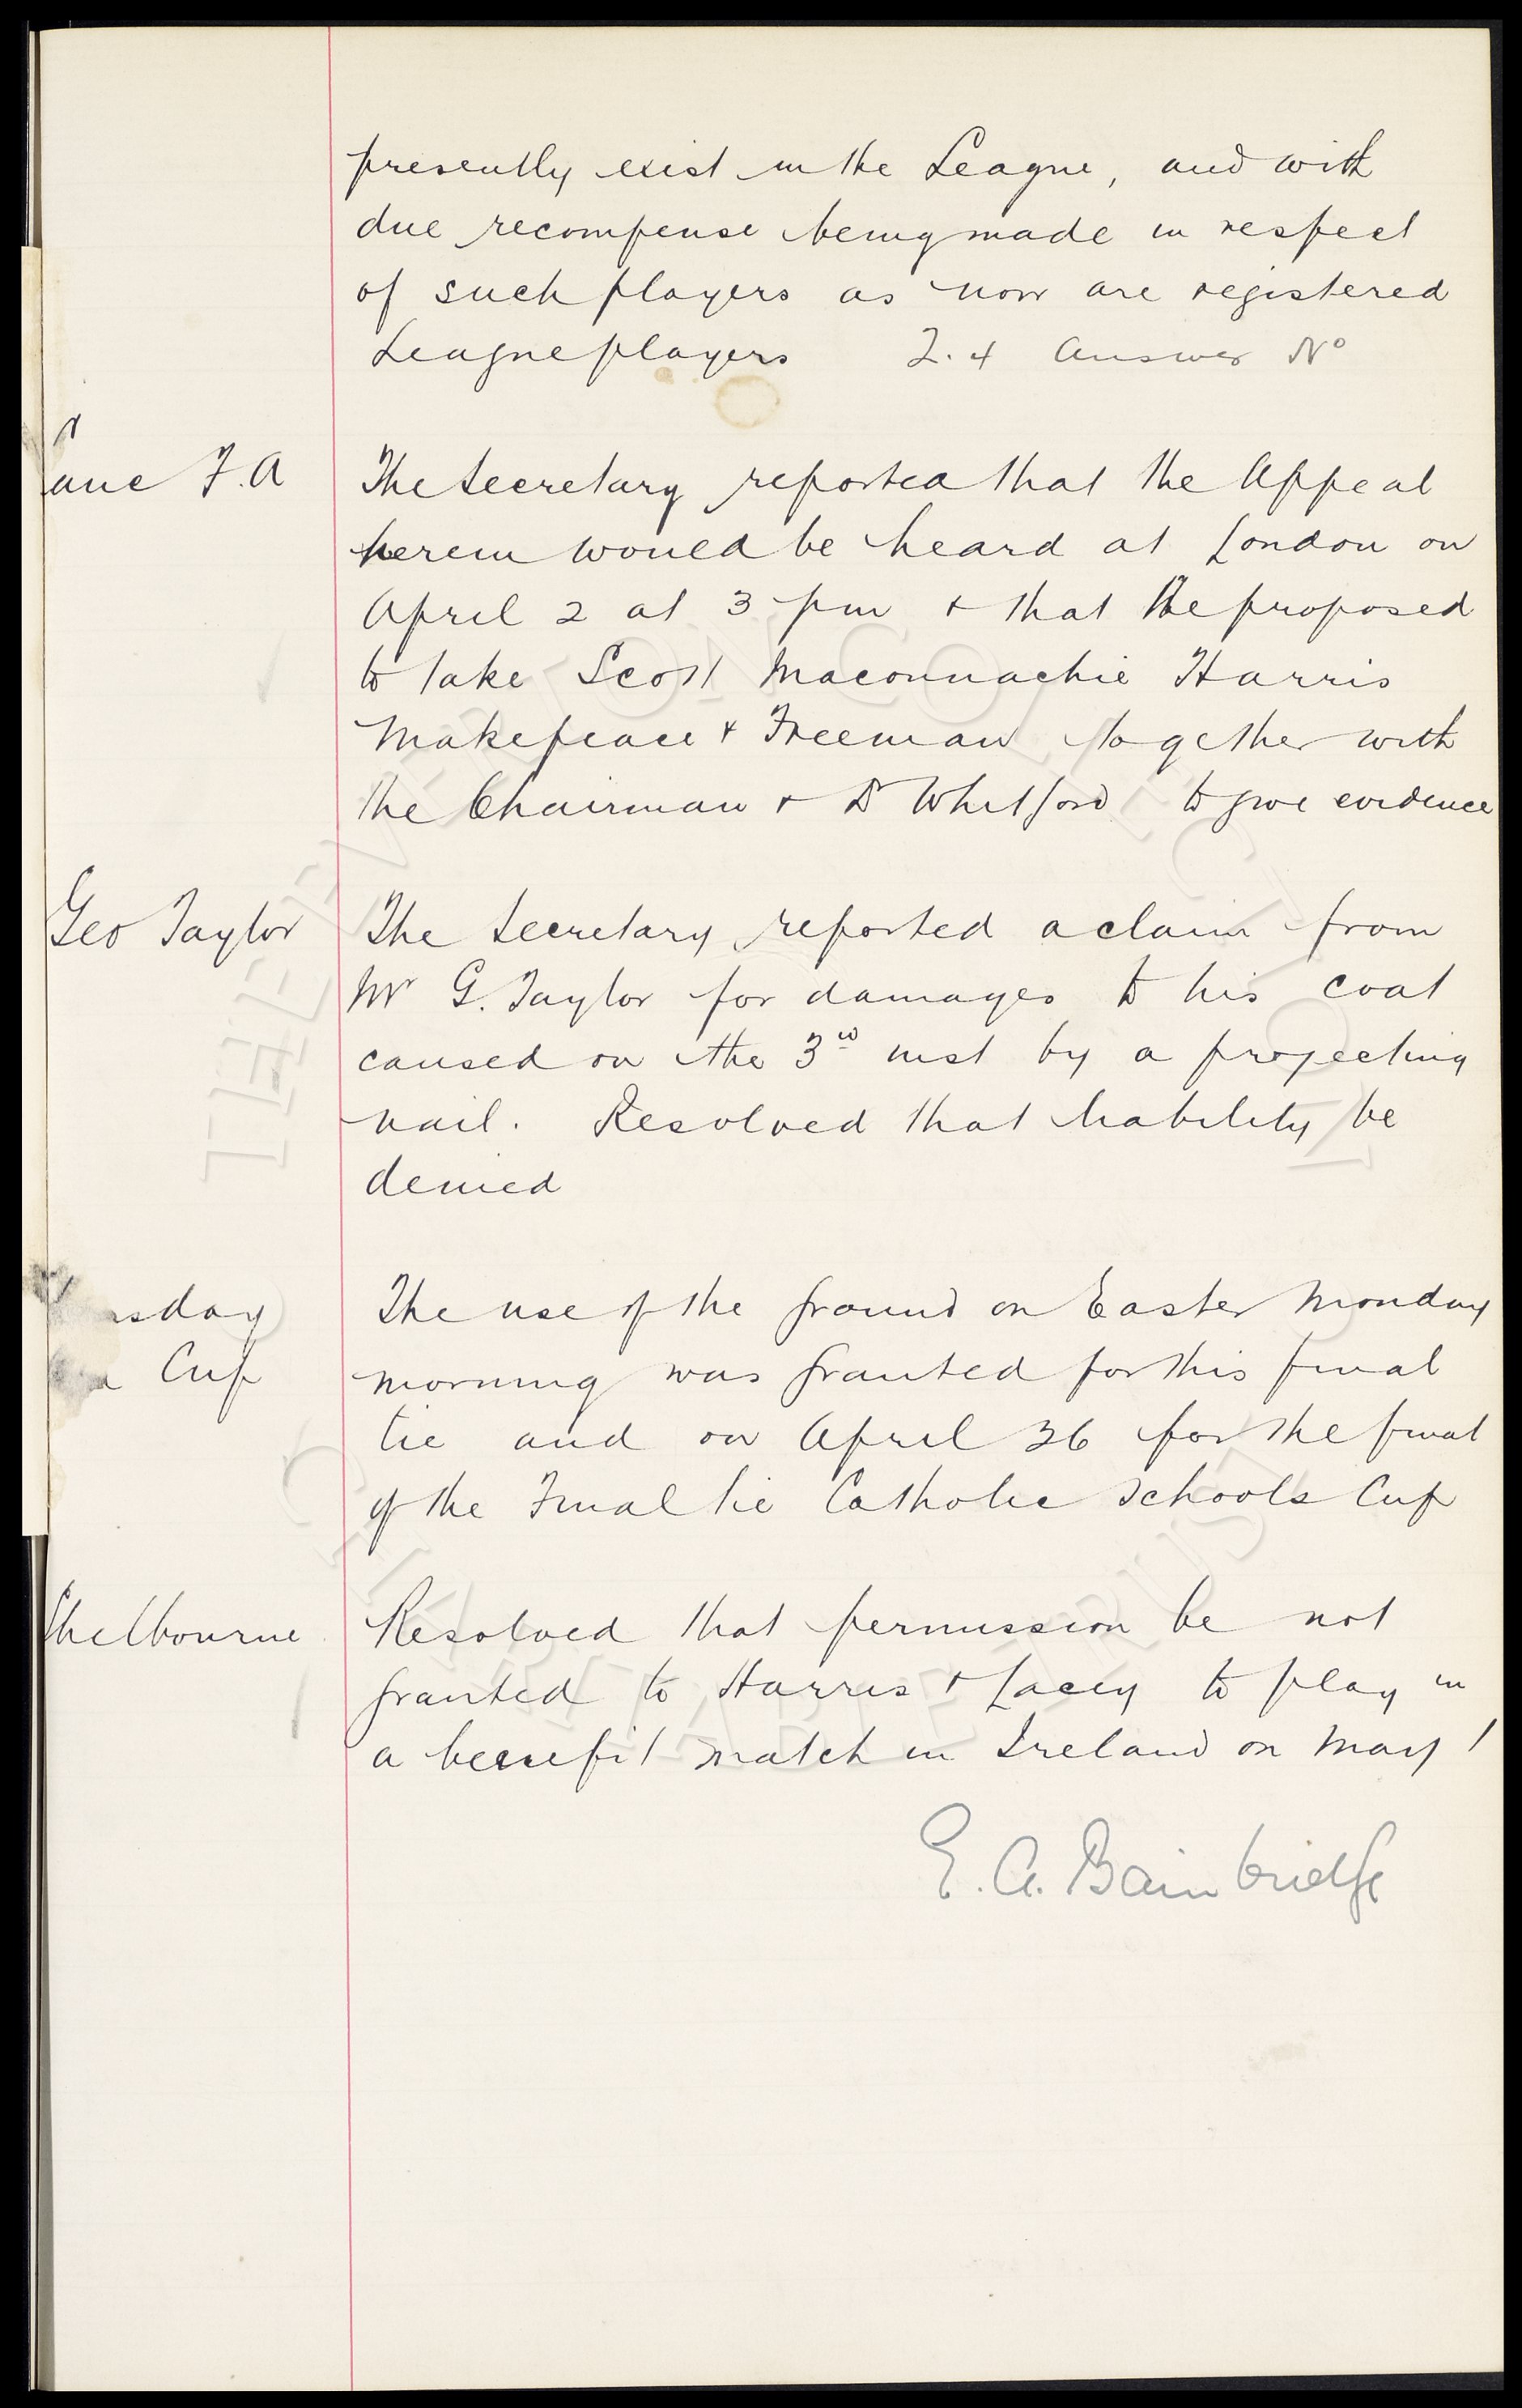 presently exist in the League, and with
due recompense being made in respect
of such players as now are registered
League players 2.4 Answer No
F.A
The Secretary reported that the Appeal
herein would be heard at London on
April 2 at 3 pm & that he proposed
to take Scott Maconnachie Harris
Makepeace & Freeman together with
the Chairman & Dr Whitford to give evidence
Geo Taylor
The Secretary reported a claim from
Mr G. Taylor for damages to his coat
caused on the 3rd inst by a projecting
nail. Resolved that liability be
denied
Cup
The use of the ground on Easter Monday
morning was granted for this final
tie and on April 26 for the final
of the Final tie Catholic Schools Cup
Shelbourne
Resolved that permission be not
granted to Harris & Lacey to play in
a benefit match in Ireland on May 1
E. A. Bainbridge